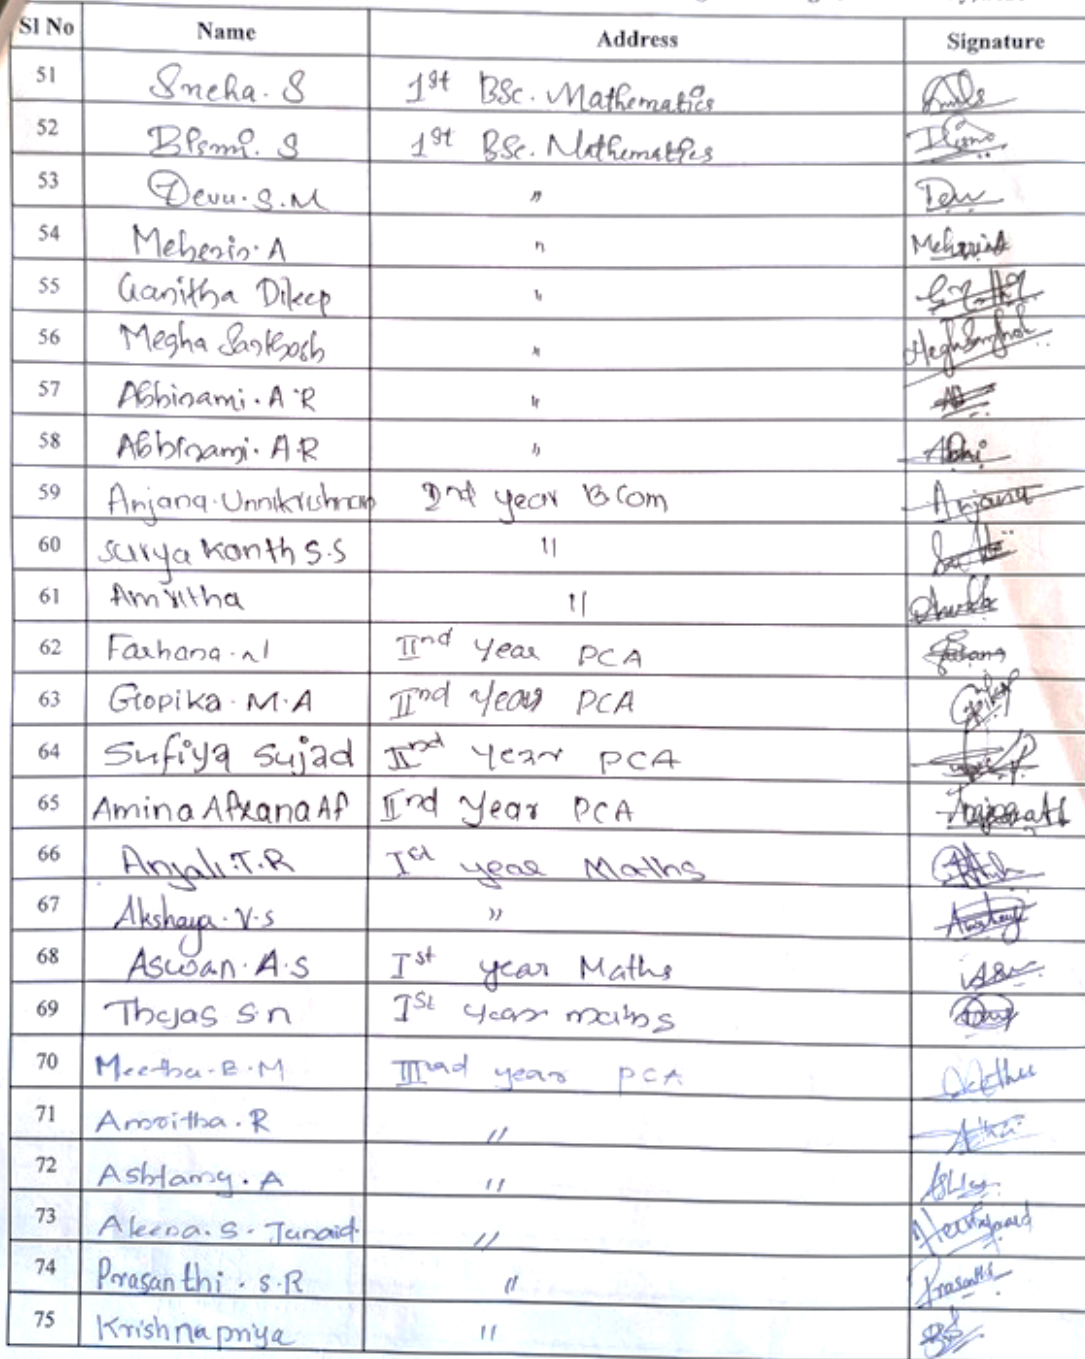 Sl No Name Address Signature
51 Sneha. S 1st BSc. Mathematics
52 Bismi. S 1st BSc. Mathematics
53 Devu. S. M "
54 Meherin. A " Meherin A
55 Ganitha Dileep "
56 Megha Santhosh "
57 Abhirami. A R "
58 Abhirami. A R " Abhi
59 Anjana. Unnikrishnan 2nd year B Com Anjana
60 Surya Kanth S.S "
61 Amritha "
62 Farhana. N IInd Year PCA
63 Gopika. M. A IInd Year PCA
64 Sufiya Sujad IInd Year PCA
65 Amina Afxana Af IInd Year PCA
66 Anjali. T. R Ist year Maths
67 Akshaya. V. S "
68 Aswan. A. S Ist year Maths
69 Thejas S n Ist Year maths
70 Meethu. B. M IIIrd year PCA
71 Amritha. R "
72 Ashtamy. A "
73 Aleena. S. Junaid "
74 Prasanthi. S. R " Prasanthi
75 Krishnapriya "